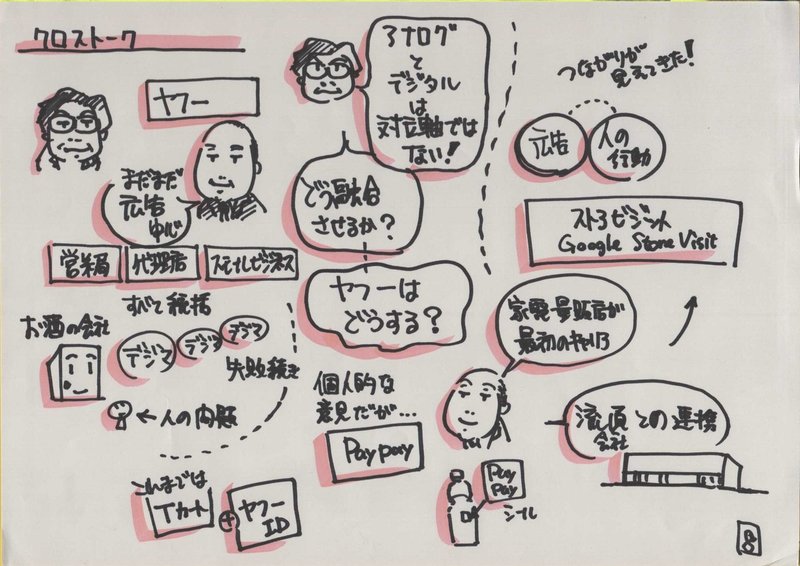 クロストーク
ヤフー
まだまだ
広告
ゆレ
営業局
代理店
スモールビジネス
すべて統括
お酒の会社
デジマ
デジマ
デジマ
失敗続き
←人の内

これまでは
Tカード
+
ヤフー
ID
アナログ
と
デジタル
は
対立軸では
ない!
どう融合
させるか?
ヤフーは
どうする?
個人的な
意見だが…
Paypay
家電量販店が
最初のキャリア
Pay
Pay
シール
つながりが
見えてきた!
広告
人の
行動
ストアビジット
Google Store Visit
流通との連携
会社
8